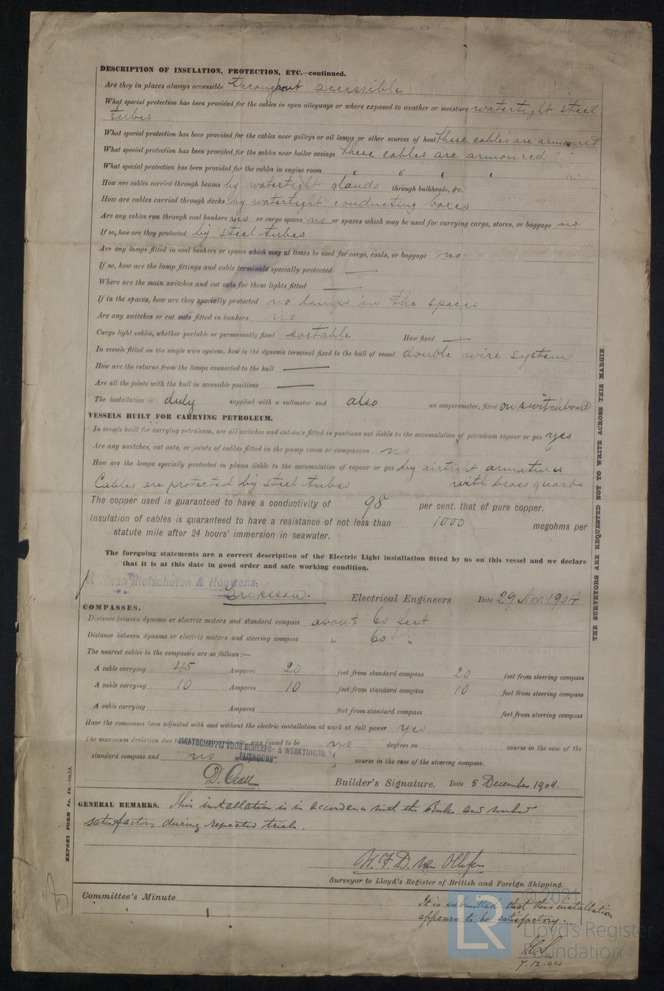 DESCRIPTION OF INSULATION, PROTECTION, ETC.—continued.
Are they in places always accessible throughout accessible
What special protection has been provided for the cables in open alleyways or where exposed to weather or moisture watertight steel
tubes
What special protection has been provided for the cables near galleys or oil lamps or other sources of heat these cables are armoured
What special protection has been provided for the cables near boiler casings these cables are armoured
What special protection has been provided for the cables in engine room " " " "
How are cables carried through beams by watertight glands through bulkheads, &c.
How are cables carried through decks by watertight conducting boxes
Are any cables run through coal bunkers yes or cargo spaces no or spaces which may be used for carrying cargo, stores, or baggage no
If so, how are they protected by steel tubes
Are any lamps fitted in coal bunkers or spaces which may at times be used for cargo, coals, or baggage no
If so, how are the lamp fittings and cable terminals specially protected —
Where are the main switches and cut outs for these lights fitted —
If in the spaces, how are they specially protected no lamps in the spaces
Are any switches or cut outs fitted in bunkers no
Cargo light cables, whether portable or permanently fixed portable How fixed —
In vessels fitted on the single wire system, how is the dynamo terminal fixed to the hull of vessel double wire system
How are the returns from the lamps connected to the hull —
Are all the joints with the hull in accessible positions —
The installation is duly supplied with a voltmeter and also an amperemeter, fixed on switchboard
VESSELS BUILT FOR CARRYING PETROLEUM.
In vessels built for carrying petroleum, are all switches and cut-outs fitted in positions not liable to the accumulation of petroleum vapour or gas yes
Are any switches, cut outs, or joints of cables fitted in the pump room or companion no
How are the lamps specially protected in places liable to the accumulation of vapour or gas by airtight armatures
Cables are protected by steel tubes with brass guards
The copper used is guaranteed to have a conductivity of 98 per cent. that of pure copper.
Insulation of cables is guaranteed to have a resistance of not less than 1000 megohms per
statute mile after 24 hours' immersion in seawater.
The foregoing statements are a correct description of the Electric Light installation fitted by us on this vessel and we declare
that it is at this date in good order and safe working condition.
van Rietschoten & Houwens
Electrical Engineers Date 29 Nov. 1904
COMPASSES.
Distance between dynamo or electric motors and standard compass about 60 feet
Distance between dynamo or electric motors and steering compass " 60 "
The nearest cables to the compasses are as follows:—
A cable carrying 45 Amperes 20 feet from standard compass 20 feet from steering compass
A cable carrying 10 Amperes 10 feet from standard compass 10 feet from steering compass
A cable carrying Amperes feet from standard compass feet from steering compass
Have the compasses been adjusted with and without the electric installation at work at full power yes
The maximum deviation due to found to be no degrees on course in the case of the
MAATSCHAPPIJ VOOR SCHEEPS- & WERKTUIGB.
standard compass and no course in the case of the steering compass.
Builder's Signature. Date 5 December 1904.
GENERAL REMARKS. This installation is in accordance with the Rules and worked
satisfactory during repeated trials.
Surveyor to Lloyd's Register of British and Foreign Shipping.
Committee's Minute
It is submitted that this installation
appears to be satisfactory.
7.12.04
THE SURVEYORS ARE REQUESTED NOT TO WRITE ACROSS THIS MARGIN.
REPORT FORM No.
© 2021
LR
Lloyd's Register
Foundation